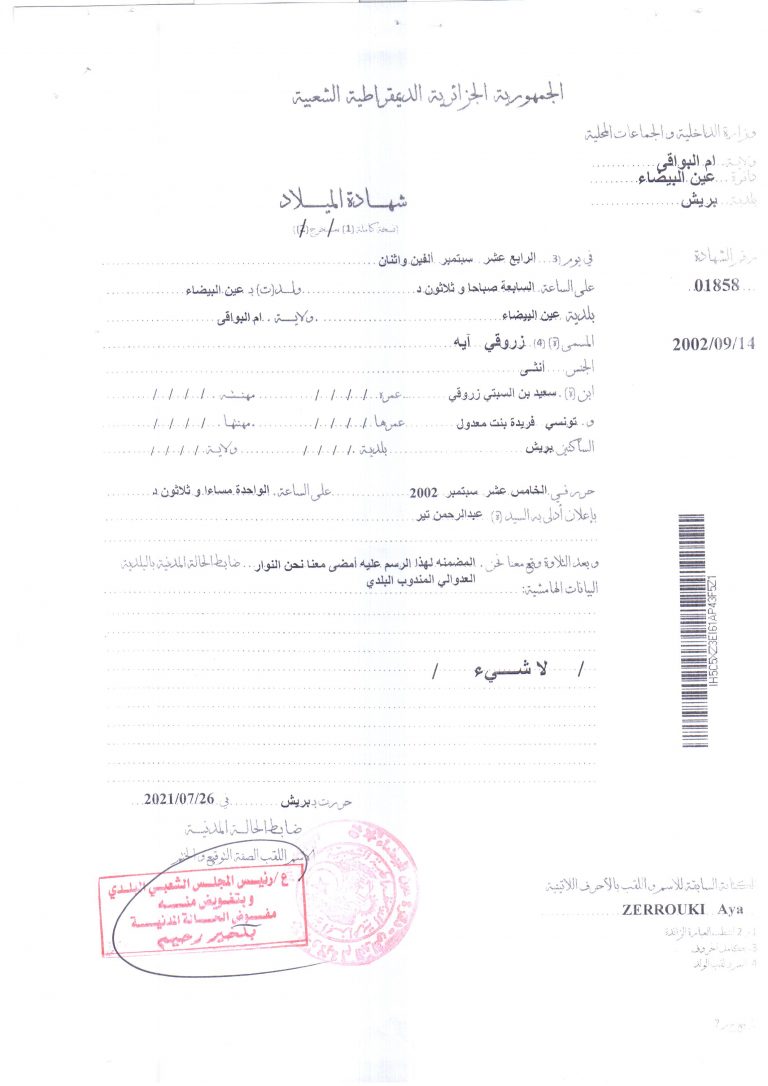 الجمهورية الجزائرية الديمقراطية الشعبية
وزارة الداخلية والجماعات المحلية
ولاية ام البواقي
دائرة عين البيضاء
بلدية بريش
شهادة الميلاد
نسخة كاملة (1)
رقم الشهادة
01858
2002/09/14
في يوم (3) الرابع عشر سبتمبر ألفين واثنان
على الساعة السابعة صباحا و ثلاثون د ولد(ت) بـ عين البيضاء
بلدية عين البيضاء ولاية ام البواقي
المسمى (ة) (4) زروقي آيه
الجنس أنثى
ابن (ة) سعيد بن السبتي زروقي عمره / / / / مهنته / / / /
و تونسي فريدة بنت معدول عمرها / / / / مهنتها / / / /
الساكنين بريش بلدية / / / / ولاية / / / /
حرر في الخامس عشر سبتمبر 2002 على الساعة الواحدة مساءا و ثلاثون د
بإعلان أدلى به السيد (ة) عبدالرحمن تير
و بعد التلاوة وقع معنا نحن المضمنه لهذا الرسم عليه أمضى معنا نحن النوار ضابط الحالة المدنية بالبلدية
العدوالي المندوب البلدي
البيانات الهامشية:
/ لا شيء /
IH5C5XZ3EI61AP43F5Z1
حررت بـ بريش في 2021/07/26
ضابط الحالة المدنية
الاسم اللقب الصفة التوقيع و الختم
ع/رئيس المجلس الشعبي البلدي
و بتفويض منه
مفوض الحالة المدنية
بلخير رحيم
الكتابة السابقة للاسم و اللقب بالأحرف اللاتينية
ZERROUKI Aya